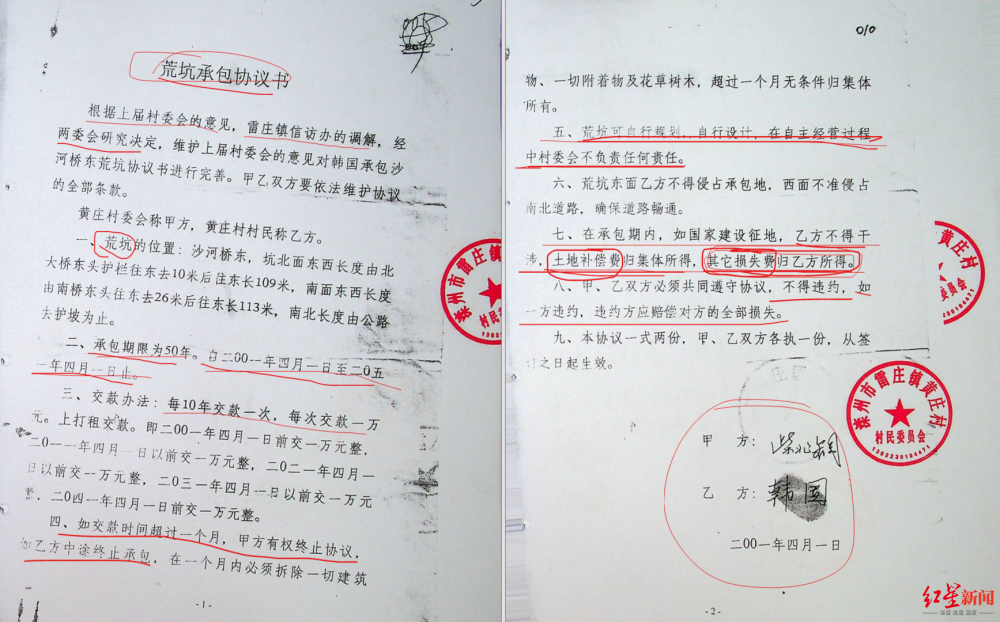 荒坑承包协议书
根据上届村委会的意见，雷庄镇信访办的调解，经
两委会研究决定，维护上届村委会的意见对韩国承包沙
河桥东荒坑协议书进行完善。甲乙双方要依法维护协议
的全部条款。
黄庄村委会称甲方，黄庄村村民称乙方。
一、荒坑的位置：沙河桥东，坑北面东西长度由北
大桥东头护栏往东去10米后往东长109米，南面东西长度
由南桥东头往东去26米后往东长113米，南北长度由公路
去护坡为止。
二、承包期限为50年。自二00一年四月一日至二0五
一年四月一日止。
三、交款办法：每10年交款一次，每次交款一万
元。上打租交款。即二00一年四月一日前交一万元整，
二0一一年四月一日以前交一万元整，二0二一年四月一
日以前交一万元整，二0三一年四月一日以前交一万元
整，二0四一年四月一日前交一万元整。
四、如交款时间超过一个月，甲方有权终止协议，
如乙方中途终止承包，在一个月内必须拆除一切建筑
-1-
雷庄镇
村民委员会
010
物、一切附着物及花草树木，超过一个月无条件归集体
所有。
五、荒坑可自行规划、自行设计，在自主经营过程
中村委会不负责任何责任。
六、荒坑东面乙方不得侵占承包地，西面不准侵占
南北道路，确保道路畅通。
七、在承包期内，如国家建设征地，乙方不得干
涉，土地补偿费归集体所得，其它损失费归乙方所得。
八、甲、乙双方必须共同遵守协议，不得违约，如
一方违约，违约方应赔偿对方的全部损失。
九、本协议一式两份，甲、乙双方各执一份，从签
订之日起生效。
甲 方：
乙 方：韩国
二00一年四月一日
-2-
黄庄村
委员会
滦州市雷庄镇黄庄村
村民委员会
红星新闻